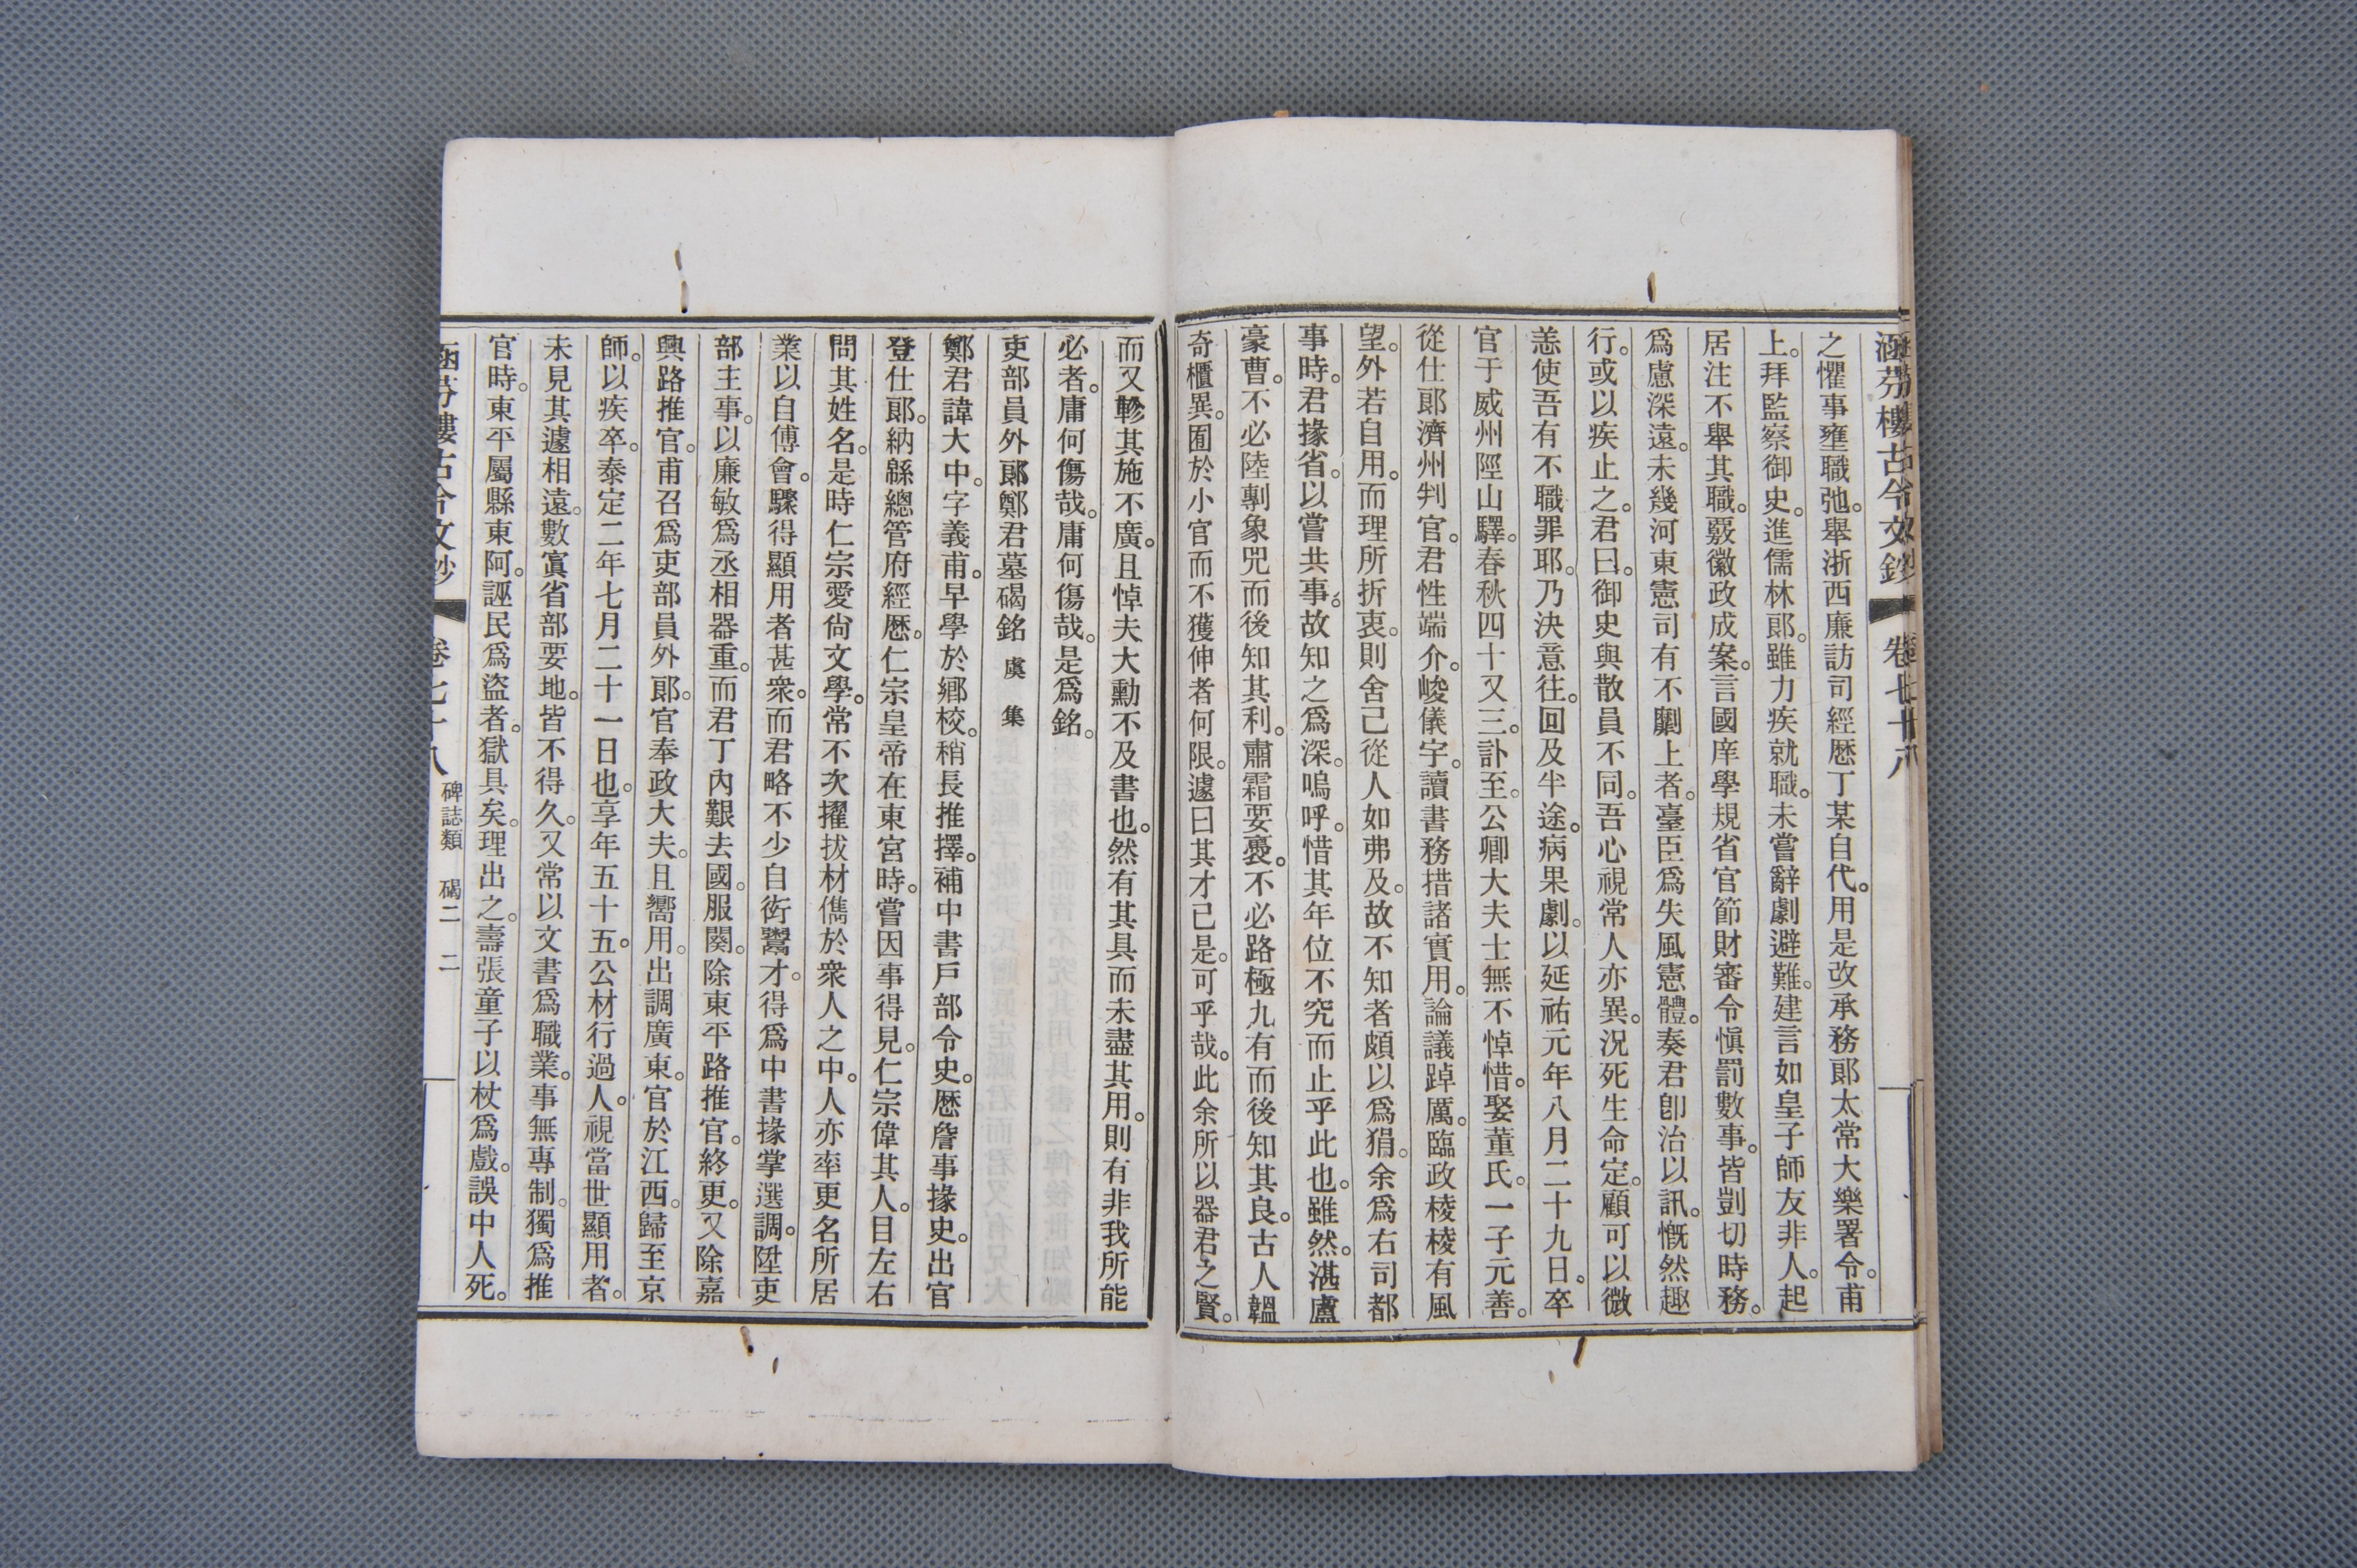 涵芬樓古今文鈔 卷七十八
之懼事壅職弛。舉浙西廉訪司經歷丁某自代。用是改承務郞太常大樂署令。甫
上。拜監察御史。進儒林郞。雖力疾就職。未嘗辭劇避難。建言如皇子師友非人。起
居注不舉其職。覈徽政成案。言國庠學規省官節財審令愼罰數事。皆剴切時務。
爲慮深遠。未幾河東憲司有不劘上者。臺臣爲失風憲體。奏君卽治以訊。慨然趣
行。或以疾止之。君曰。御史與散員不同。吾心視常人亦異。況死生命定。顧可以微
恙使吾有不職罪耶。乃決意往。回及半途。病果劇。以延祐元年八月二十九日。卒
官于威州陘山驛。春秋四十又三。訃至。公卿大夫士無不悼惜。娶董氏。一子元善。
從仕郞濟州判官。君性端介。峻儀宇。讀書務措諸實用。論議踔厲。臨政棱棱有風
望。外若自用。而理所折衷。則舍己從人如弗及。故不知者頗以爲狷。余爲右司都
事時。君掾省。以嘗共事。故知之爲深。嗚呼。惜其年位不究而止乎此也。雖然。湛盧
豪曹。不必陸剸象兕而後知其利。驌霜要褭。不必路極九有而後知其良。古人韞
奇櫃異。囿於小官而不獲伸者何限。遽曰其才已是。可乎哉。此余所以器君之賢。
而又軫其施不廣。且悼夫大勳不及書也。然有其具而未盡其用。則有非我所能
必者。庸何傷哉。庸何傷哉。是爲銘。
吏部員外郞鄭君墓碣銘 虞集
鄭君諱大中。字義甫。早學於鄕校。稍長推擇。補中書戶部令史。歷詹事掾史。出官
登仕郞。納緜總管府經歷。仁宗皇帝在東宮時。嘗因事得見。仁宗偉其人。目左右
問其姓名。是時仁宗愛尙文學。常不次擢拔材儁於衆人之中。人亦率更名所居
業以自傅會。驟得顯用者甚衆。而君略不少自衒鬻才。得爲中書掾掌選調。陞吏
部主事。以廉敏爲丞相器重。而君丁內艱去國。服闋。除東平路推官。終更。又除嘉
興路推官。甫召爲吏部員外郞。官奉政大夫。且嚮用。出調廣東。官於江西。歸至京
師。以疾卒。泰定二年七月二十一日也。享年五十五。公材行過人。視當世顯用者。
未見其遽相遠。數寘省部要地。皆不得久。又常以文書爲職業。事無專制。獨爲推
官時。東平屬縣東阿。誣民爲盜者。獄具矣。理出之。壽張童子以杖爲戲。誤中人死。
涵芬樓古今文鈔 卷七十八 碑誌類 碣二 二